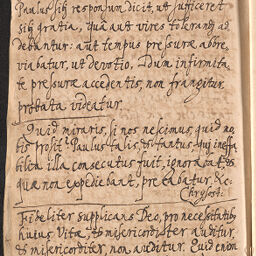 Paulus sibi responsum dicit, ut sufficeret
sibi gratia, qua aut vires tolerandi ad
debantur: aut tempus pressuræ abbre,
viabatur, ut devotio, dum infirmita,
te pressuræ accedentis, non frangitur
probata videatur.
Quid miraris, si nos nescimus, quid no,
bis prosit: Paulus talis, & tantus
illa consecutus fuit, ignorabat &
quæ non expediebant, precabatur. &c.
Chrysost.
Fideliter supplicans Deo, pro necessitatib,
huius Vitæ, & misericorditer auditur,
& misericorditer, non auditur. Quid enim